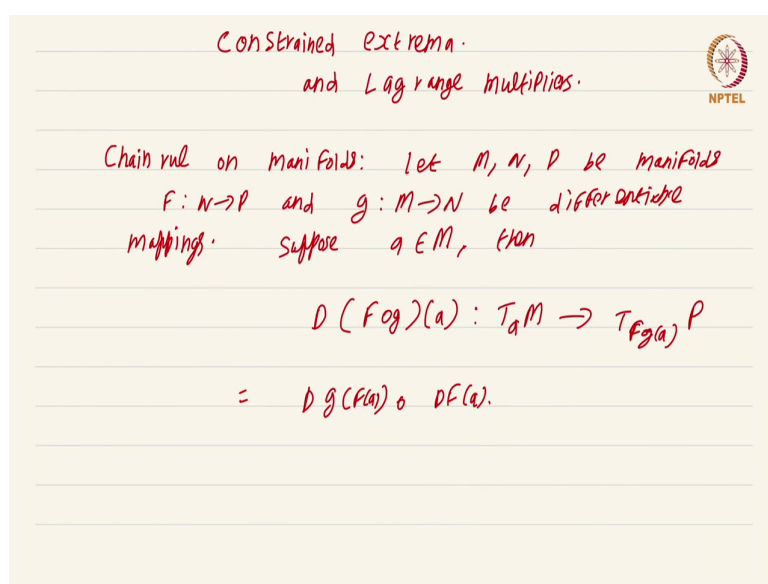 Constrained extrema.
and Lagrange multipliers.
NPTEL
Chain rul on manifolds: let M, N, P be manifolds
F: N→P and g: M→N be differentiable
mappings. Suppose a ∈ M, then
D(Fog)(a): TₐM → T_Fg(a) P
= Dg(F(a)) ∘ DF(a).